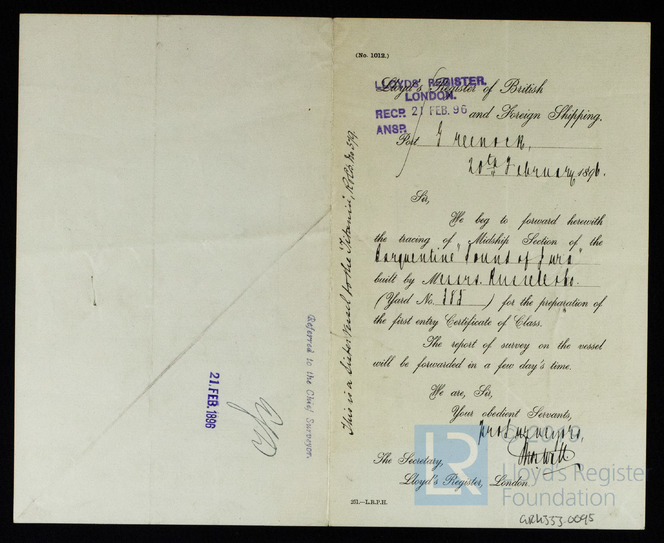 (No. 1012.)
Lloyd's Register of British
and Foreign Shipping.
LLOYDS' REGISTER.
LONDON.
RECP. 21 FEB. 96
ANSP.
Port Greenock,
20th February 1896.
Sir,
We beg to forward herewith
the tracing of Midship Section of the
Barquentine "Sound of Jura"
built by Messrs. Russell & Co.
(Yard No. 385) for the preparation of
the first entry Certificate of Class.
The report of survey on the vessel
will be forwarded in a few day's time.
We are, Sir,
Your obedient Servants,
The Secretary,
Lloyd's Register, London.
251.—L.R.P.H.
This is a Sister Vessel to the "Titania",
Referred to the Chief Surveyor.
21. FEB. 1896
LR
Lloyd's Register
Foundation
GRK353-0095